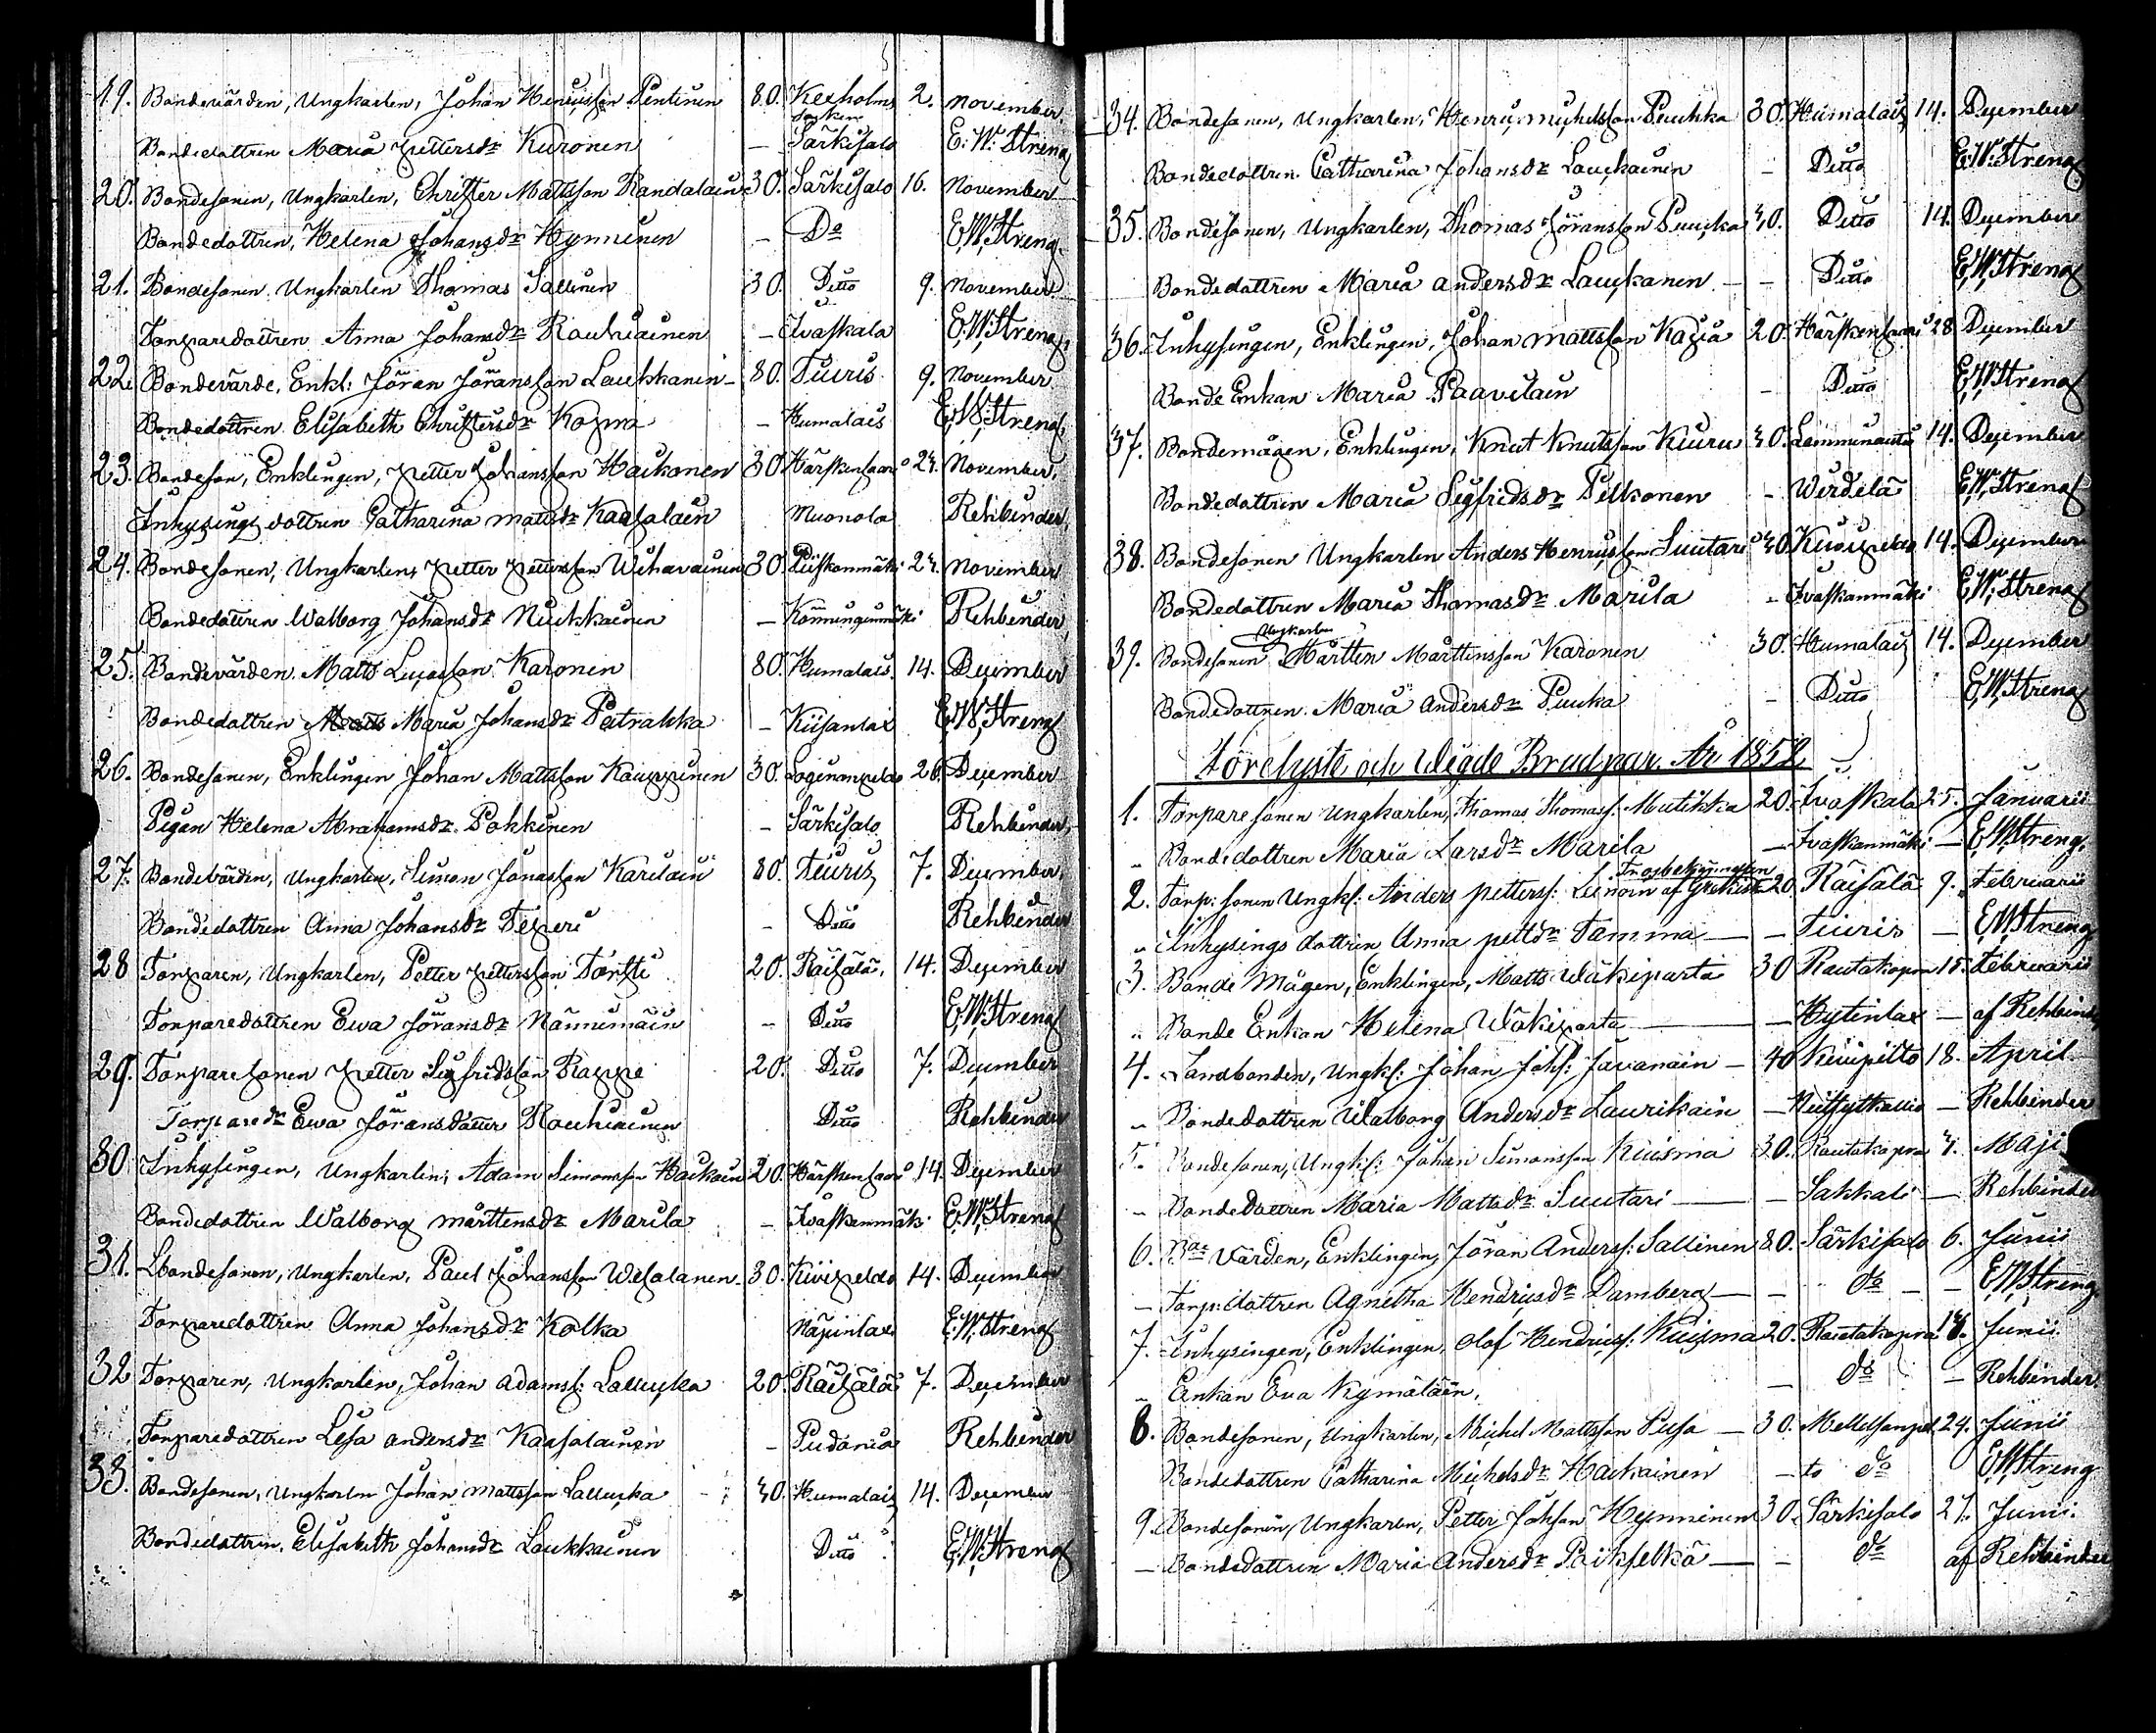 19. Bondevärden, Ungkarlen, Johan Henricsson Pentinen 80. Kexholms Socken 2. November.
Bondedottren Maria Pettersdr Kuronen – Särkisalo E. W. Streng
20. Bondesonen, Ungkarlen, Christer Mattsson Randalain 30. Särkisalo 16. November
Bondedottren, Helena Johansdr Hynninen – Do E. W. Streng
21. Bondesonen Ungkarlen Thomas Sallinen 30. Ditto 9. November.
Torparedottren Anna Johansdr Rouhiainen – Ivaskala E. W. Streng
22. Bondevärde, Enkl: Jöran Jöransson Laukkanen – 80. Tiuris 9. November
Bondedottren Elisabeth Christersdr Kozma – Humalais E. W. Streng
23. Bondeson, Enklingen, Petter Johansson Haikonen 30. Härskensaari 24. November.
Inhysings dottren Catharina Mattsdr Kaasalain Muonola Rehbinder
24. Bondesonen, Ungkarlen, Petter Pettersson Wihavainen 30. 24. November
Bondedottren Walborg Johansdr Nuikkainen – Könnungenmäki Rehbinder
25. Bondevärden. Matts Lucasson Karonen 80. Humalais. 14. December
Bondedottren Maria Johansdr Patrakka – Kiisanlax E. W. Streng
26. Bondesonen, Enklingen Johan Mattsson Kauppinen 30. 26. December
Pigan Helena Abrahamsdr Pokkinen – Särkisalo Rehbinder
27. Bondevärden, Ungkarlen, Simon Jonasson Karilain 80. Tiuris 7. December
Bondedottren Anna Johansdr Teperi – Ditto Rehbinder
28 Torparen, Ungkarlen, Petter Pettersson Torsti 20. Räisälä, 14. December
Torparedottren Ewa Jöransdr Nännimäin – Ditto E. W. Streng
29. Torparesonen Petter Sigfridsson Rappe 20. Ditto 7. December
Torparedr Ewa Jöransdotter Rouhiainen Ditto Rehbinder
30. Inhysingen, Ungkarlen, Adam Simonsson Haikain 20. Härskensaari 14. December
Bondedottren Walborg Mårtensdr Marila – Ivaskanmäki E. W. Streng
31. Bondesonen, Ungkarlen, Paul Johansson Wesalanen – 30. Kiwipelto 14. December
Torparedottren Anna Johansdr Kolka Näpinlax E. W. Streng
32 Torparen, Ungkarlen, Johan Adamss: Lallucka 20. Räisälä 7. December
Torparedottren Lisa Andersdr Kaasalainen – Pudoria Rehbinder
33. Bondesonen, Ungkarlen Johan Mattsson Lallucka 30. Humalais 14. December
Bondedottren. Elisabeth Johansdr Laukkainen Ditto E. W. Streng
34. Bondesonen, Ungkarlen, Henric Michelsson Puukka 30. Humalais 14. December
Bondedottren Catharina Johansdr Lauckainen – Ditto E. W. Streng
35. Bondesonen, Ungkarlen, Thomas Jöransson Puucka 30. Ditto 14. December
Bondedottren Maria Andersdr Lauckanen – – Ditto E. W. Streng
36. Inhysingen, Enklingen, Johan Mattsson Kapia 20. Härskensaari 28 December
Bonde Enkan Maria Paavilain – Ditto E. W. Streng
37. Bondemågen, Enklingen, Knut Knutsson Kiuru 30. 14. December
Bondedottren Maria Sigfridsdr Pelkonen – Wirdelä E. W. Streng
38. Bondesonen Ungkarlen Anders Henricsson Suutari 30. Kiwipelto 14. December
Bondedottren Maria Thomasdr Marila – Ivaskanmäki E. W. Streng
39. Bondesonen Ungkarlen Mårten Mårtensson Karonen 30. Humalais 14. December
Bondedottren. Maria Andersdr Puuka – Ditto E. W. Streng
Förelyste och Wigde Brudpar År 1852
1. Torparesonen Ungkarlen, Thomas Thomass: Mutikka 20. Ivaskala 25. Januarii
„ Bondedottren Maria Larsdr Marila – Ivaskanmäki – E. W. Streng.
2. Torp: sonen Ungk: Anders Petterss: Leinoin af Grekisk Trosbekännelsen 20. Räisälä 9. Februarii
„ Inhysings dottren Anna Pettdr Tamma – – Tiuris – E. W. Streng
3. Bonde Mågen, Enklingen, Matts Wäkiparta 30 Rautakopra 15. Februarii
„ Bonde Enkan Helena Wäkiparta – Hytinlax – af Rehbinder
4. Landbonden, Ungk: Johan Johs: Juvanain – 40 Kiwipelto 18. April
„ Bondedottren Walborg Andersdr Laurikain – – Rehbinder
5. Bondesonen, Ungk: Johan Simonsson Kuisma 30. Rautakopra 4. Maji
– Bondedottren Maria Mattsdr Suutari – – Sakkali – Rehbinder
6. Bde Värden, Enklingen, Jöran Anderss: Sallinen 80. Särkisalo 6. Junii
– Torp: dottren Agnetha Hendricsdr Damberg – – do – – E. W. Streng
7. Inhysingen, Enklingen, Olof Hendricss: Kuisma 20. Rautakopra 18. Junii
„ Enkan Eva Kymäläin. – do – Rehbinder.
8. Bondesonen, Ungkarlen, Michel Mattsson Pusa – 30. 24. Junii
Bondedottren Catharina Michelsdr Hackainen – to do E. W. Streng
9. Bondesonen, Ungkarlen, Petter Johsson Hynninen 30. Särkisalo 27. Junii.
– Bondedottren Maria Andersdr Paikselkä – – do af Rehbinder